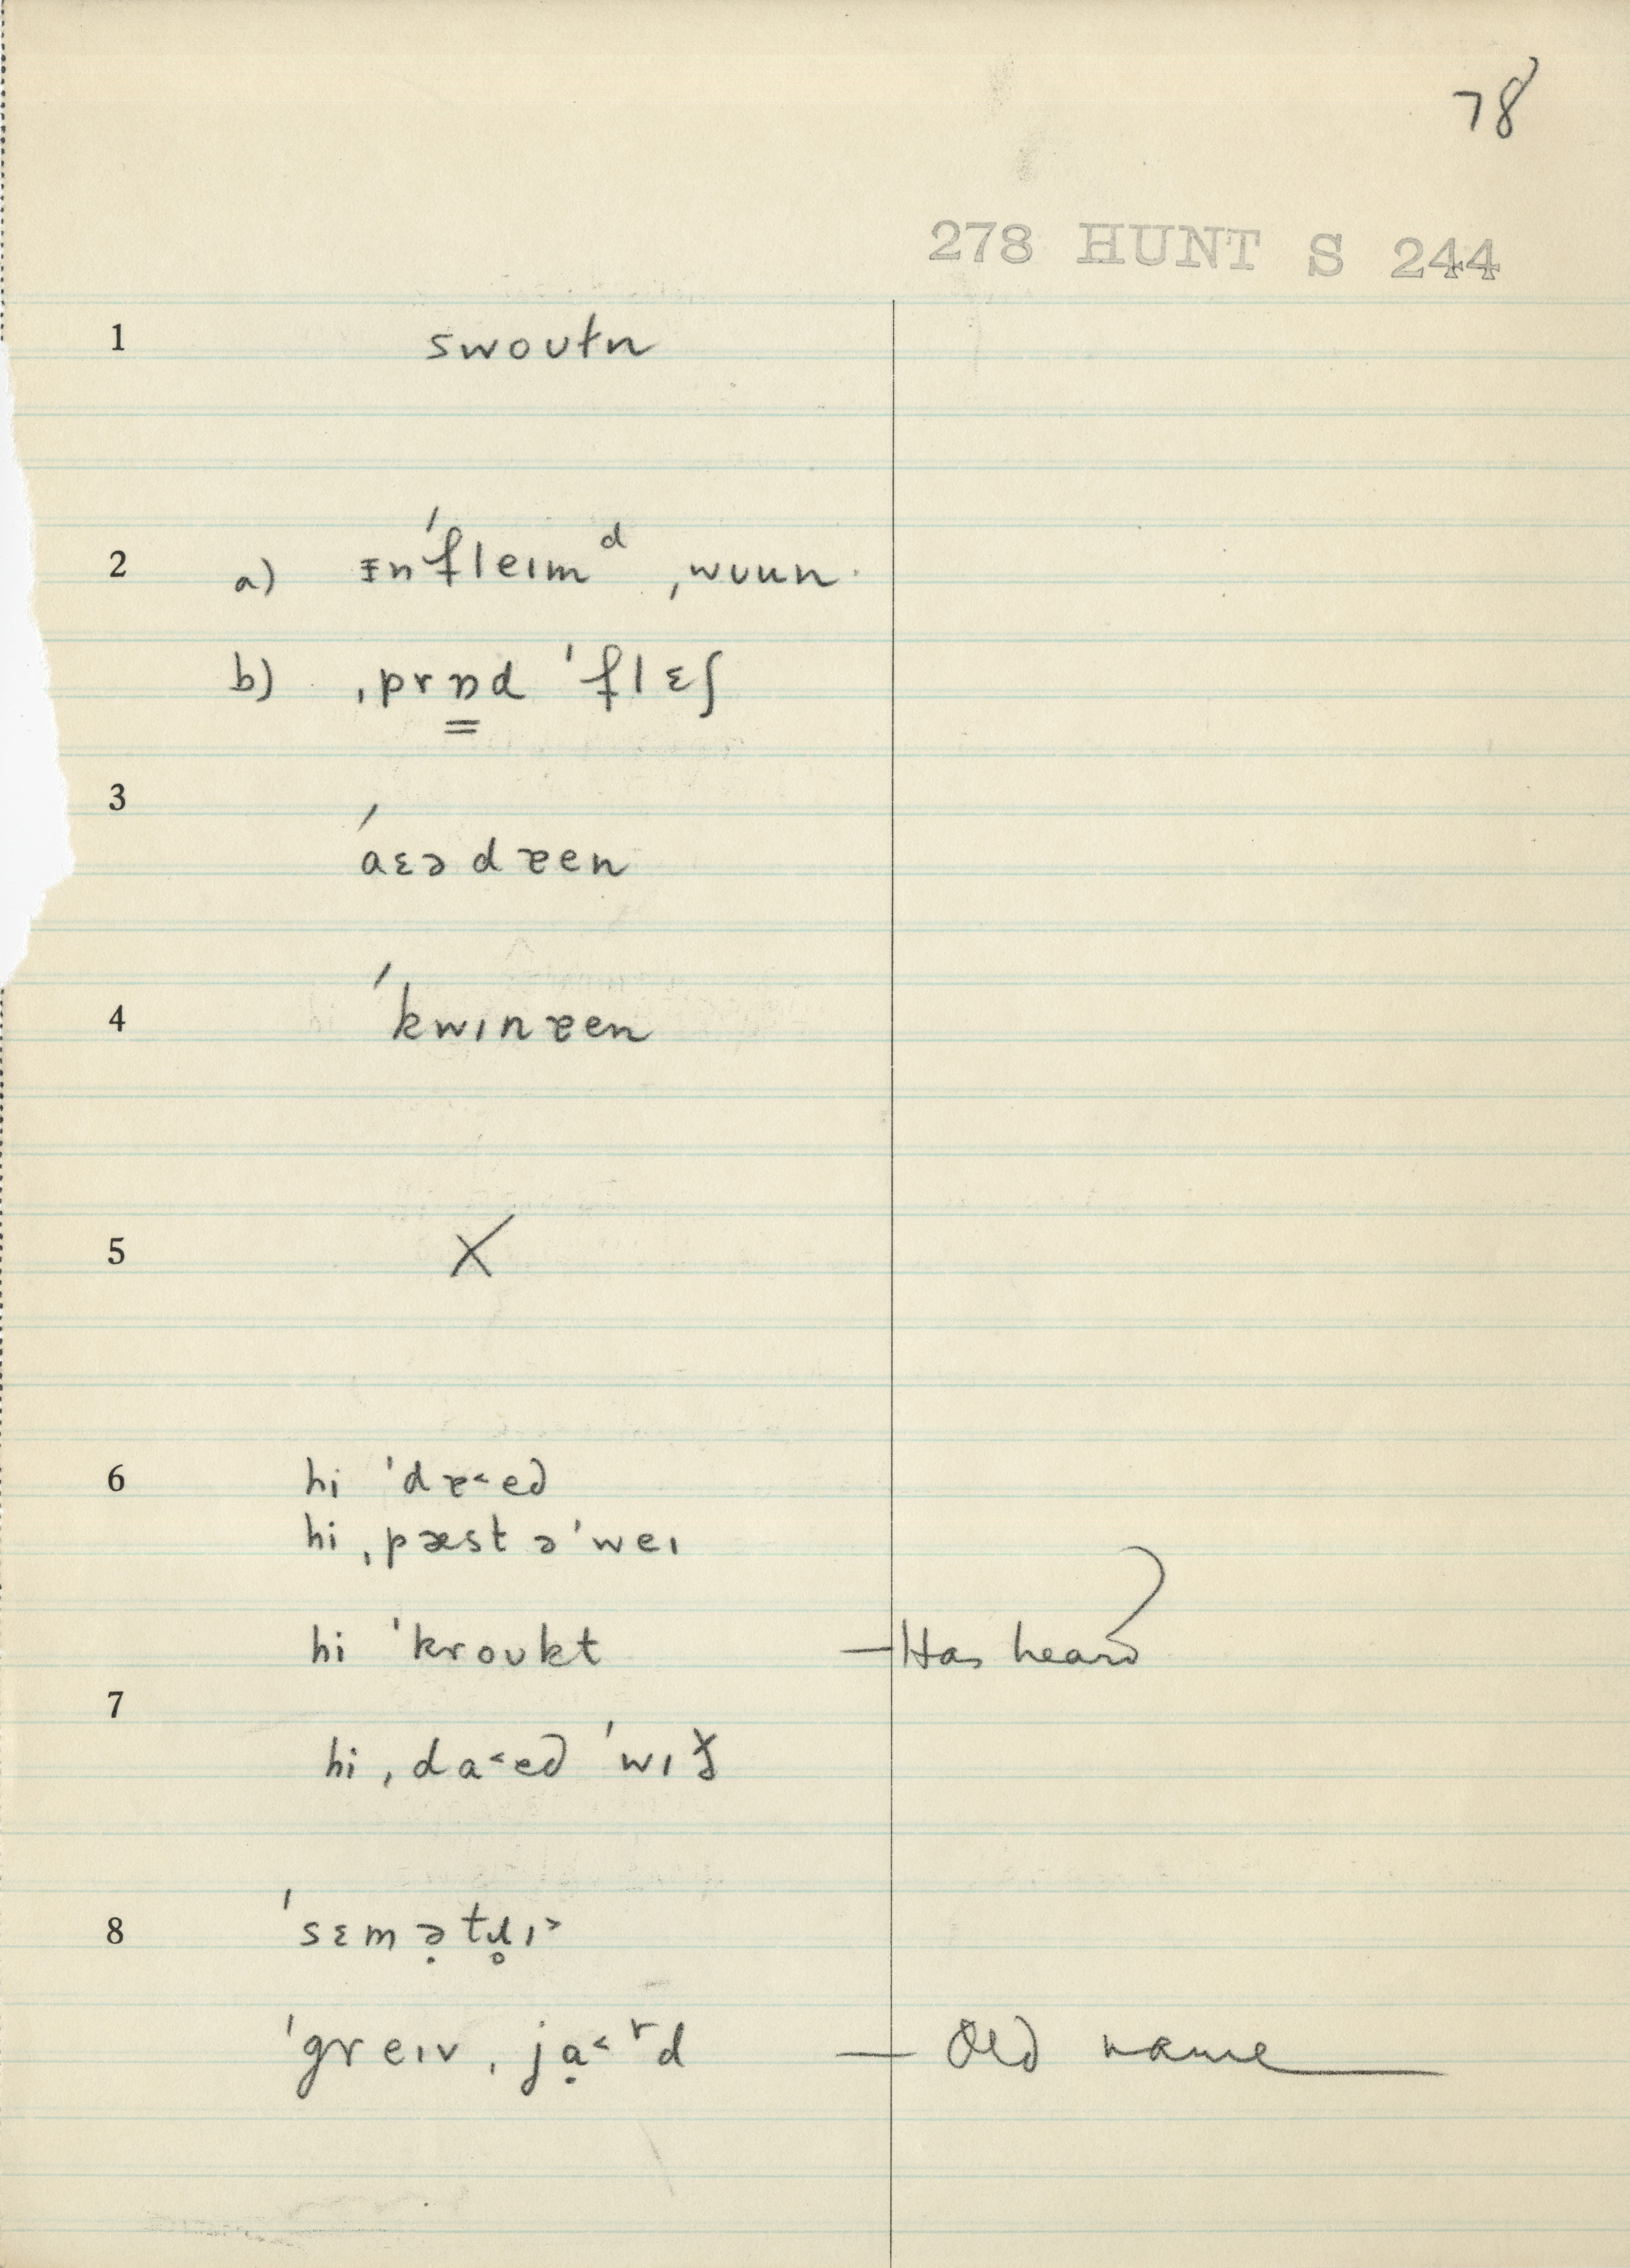 78
278 HUNT S 244
1 swoʊtn
2 a) ɪn'fleɪmᵈ ˌwuun
b) ˌprɒd 'flɛʃ
3 'aɛədɐen
4 'kwɪnɐen
5 X
6 hi 'dɐ˂ed
hi ˌpæst ə'weɪ
hi 'kroʊkt — Has heard
7
hi ˌda˂ed 'wɪ
8 'sɛmə̣tɹ̥ɪ˃
'greɪv ˌjạ˂ʳd — Old name